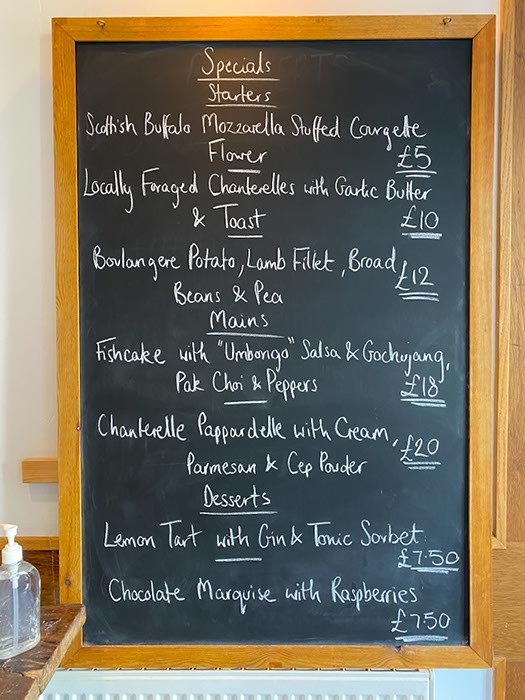 Specials
Starters
Scottish Buffalo Mozzarella Stuffed Courgette
Flower £5
Locally Foraged Chanterelles with Garlic Butter
& Toast £10
Boulangere Potato, Lamb Fillet, Broad £12
Beans & Pea
Mains
Fishcake with "Umbongo" Salsa & Gochujang,
Pak Choi & Peppers £18
Chanterelle Pappardelle with Cream, £20
Parmesan & Cep Powder
Desserts
Lemon Tart with Gin & Tonic Sorbet
£7.50
Chocolate Marquise with Raspberries
£7.50